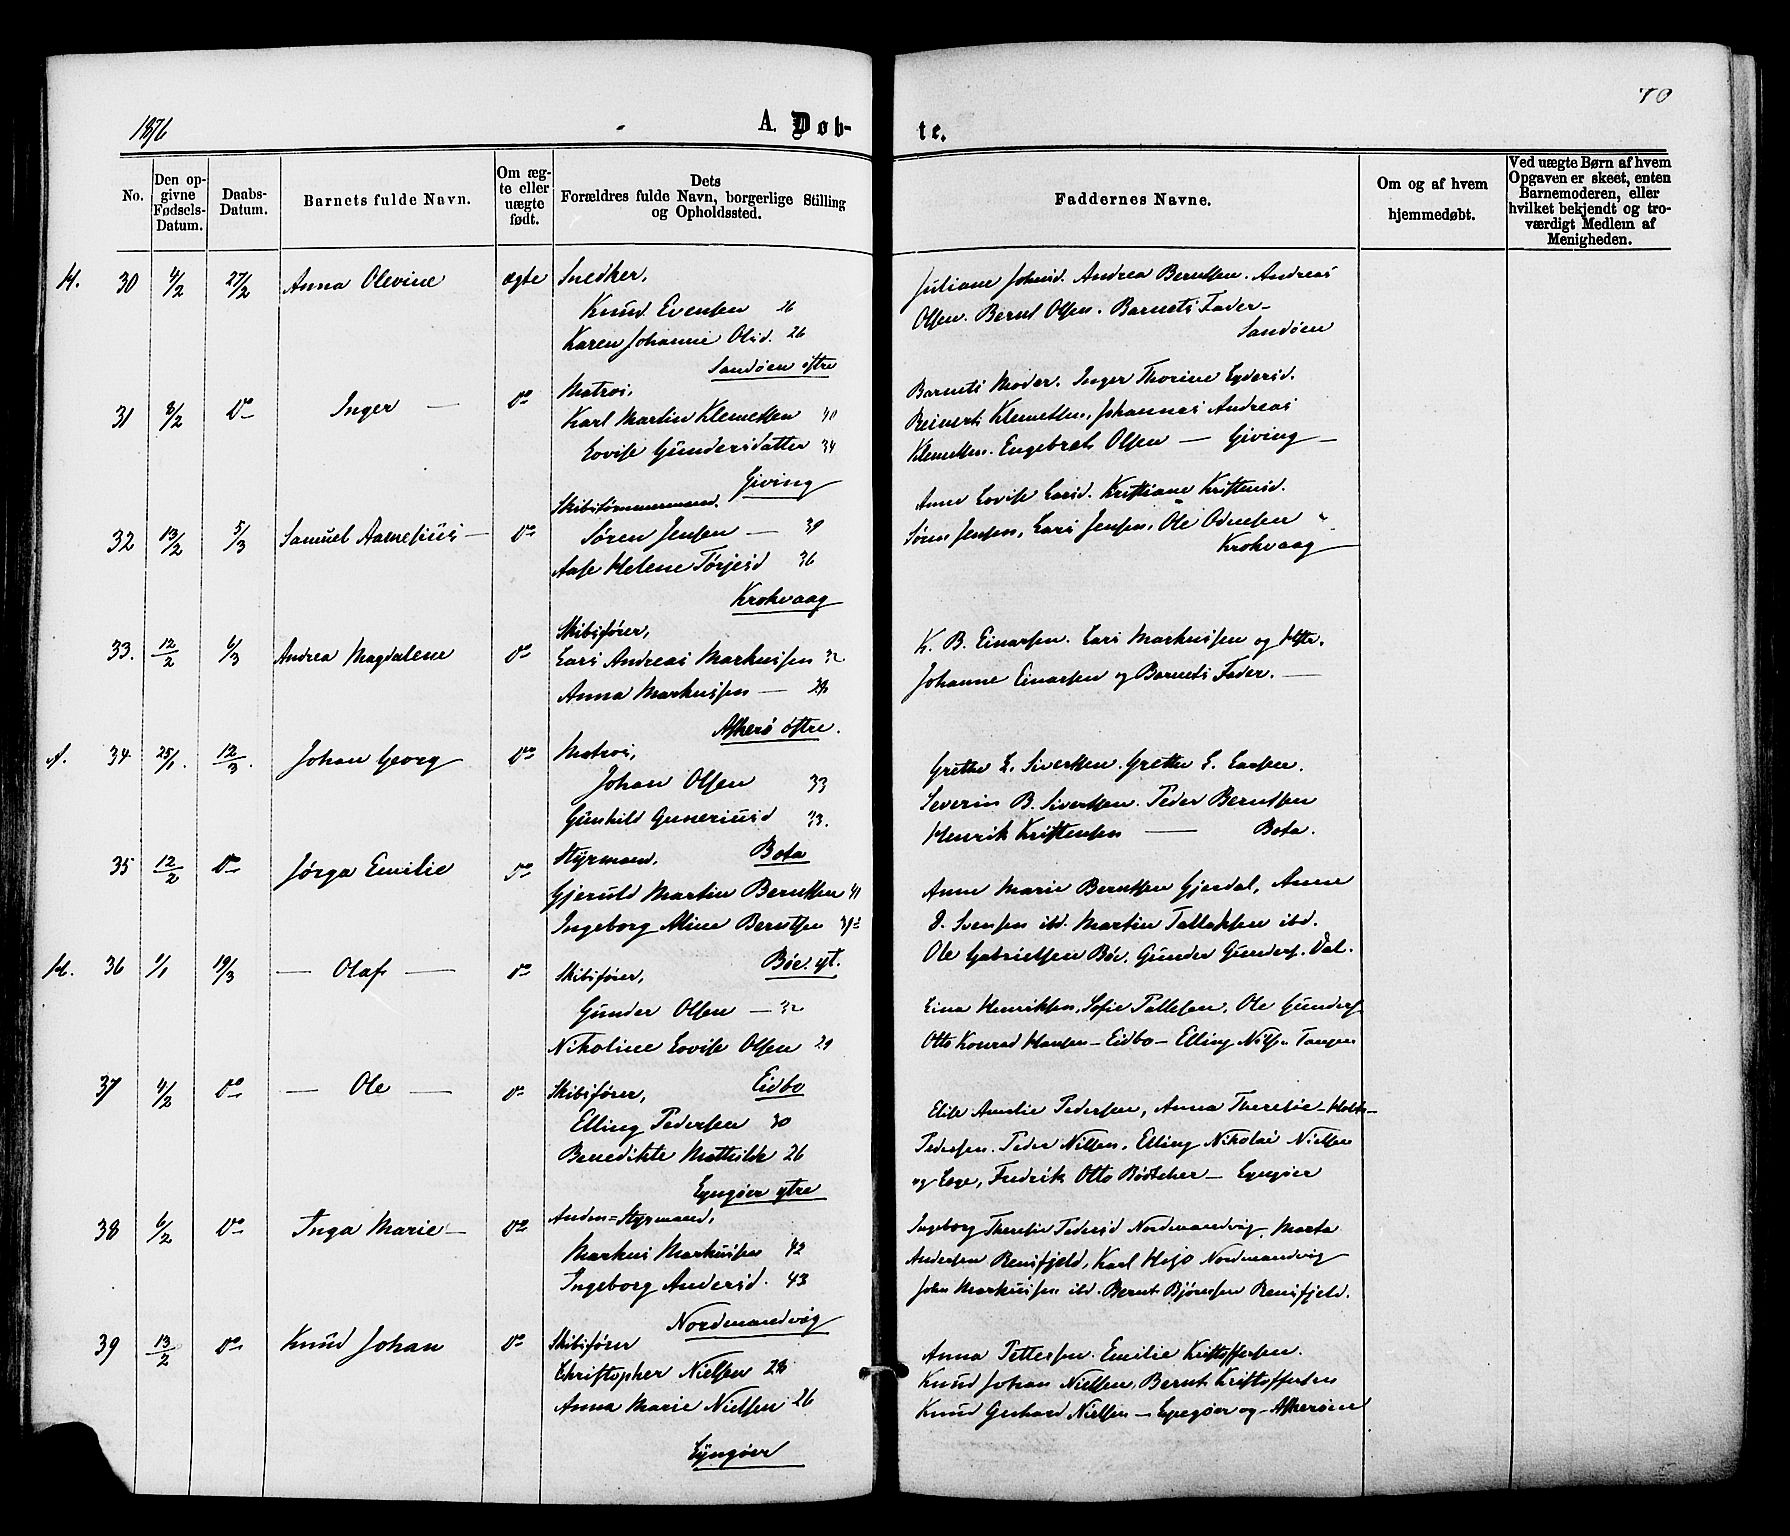 70
1876
A. Døb-
te.
No.
Den op-
givne
Fødsels-
Datum.
Daabs-
Datum.
Barnets fulde Navn.
Om æg-
te eller
uægte
født.
Dets
Forældres fulde Navn, borgerlige Stilling
og Opholdssted.
Faddernes Navne.
Om og af hvem
hjemmedøbt.
Ved uægte Børn af hvem
Opgaven er skeet, enten
Barnemoderen, eller
hvilket bekjendt og tro-
værdigt Medlem af
Menigheden.
H. 30 4/2 27/2 Anna Olevine ægte Snedker,
Knud Evensen 26
Karen Johanne Olsd. 26
Sandøen østre
Juliane Johnsd. Andrea Berntsen. Andreas
Olsen. Bernt Olsen. Barnets Fader –
Sandøen
31 8/2 Do Inger — do Matros,
Karl Martin Klemetsen 40
Lovise Gundersdatter 34
Giving
Barnets Moder. Inger Thorine Eydersd.
Reinert Klemetsen, Johannes Andreas
Klemetsen. Engebret Olsen — Giving —
32 13/2 5/3 Samuel Aanesius — do Skibstømmermand.
Søren Jensen — 39
Aase Helene Tørjesd 36
Krokvaag
Anne Lovise Larsd. Kristiane Kristensd.
Søren Jensen, Lars Jensen, Ole Odensen
Krokvaag
33. 12/2 6/3 Andrea Magdalene do Skibsfører,
Lars Andreas Markussen 32
Anna Markussen — 28
Askerø østre.
K. B. Einarsen. Lars Markussen og Hstr.
Johanne Einarsen og Barnets Fader. —
A. 34 25/1. 12/3. Johan Georg do Matros,
Johan Olsen 33
Gunhild Guneriusd 33.
Bota
Grethe L. Sivertsen. Grethe E. Larsen.
Severin B. Sivertsen. Peder Berntsen
Henrik Kristensen — Bota.
35 12/2 Do Jørga Emilie do Styrmand.
Gjeruld Martin Berntsen 41
Ingeborg Aline Berntsen
Bøe. yt.
Anne Marie Berntsen Gjerdal, Anne
D. Svensen ibd. Martin Tallaksen ibd.
Ole Gabrielsen Bøe. Gunder Gunders. Dal.
H. 36 1/1 19/3 — Olaf — do Skibsfører,
Gunder Olsen — 32
Nikoline Lovise Olsen 29
Eidbo
Lina Henriksen, Sofie Tallesen, Ole Gunders
Otto Konrad Hansen – Eidbo – Elling Nils. Tangen
37 4/2 do — Ole — do Skibsfører,
Elling Pedersen 30
Benedikte Mathilde 26
Lyngøer ytre
Elise Amalie Pedersen, Anna Theresie Holst
Pedersen. Peder Nilsen, Elling Nikolai Nielsen
og Frederik Otto Bødtcher — Lyngøer
38 6/2 Do Inga Marie — do Anden=Styrmand,
Markus Markussen 42
Ingeborg Andersd. 43
Nordmandvig
Ingeborg Therese Pedersd Nordmandvig, Marta
Andersen Rensfjeld, Karl Hejo Nordmandvig
John Markussen ibd. Bernt Bjørnsen Rensfjeld.
39 13/2 do Knud Johan do Skibsfører
Christopher Nielsen 28
Anna Marie Nielsen 26
Lyngøer
Anna Pettersen. Emilie Kristoffersen.
Knud Johan Nielsen, Bernt Kristoffersen
Knud Gerhard Nielsen — Lyngøer og Askerøen